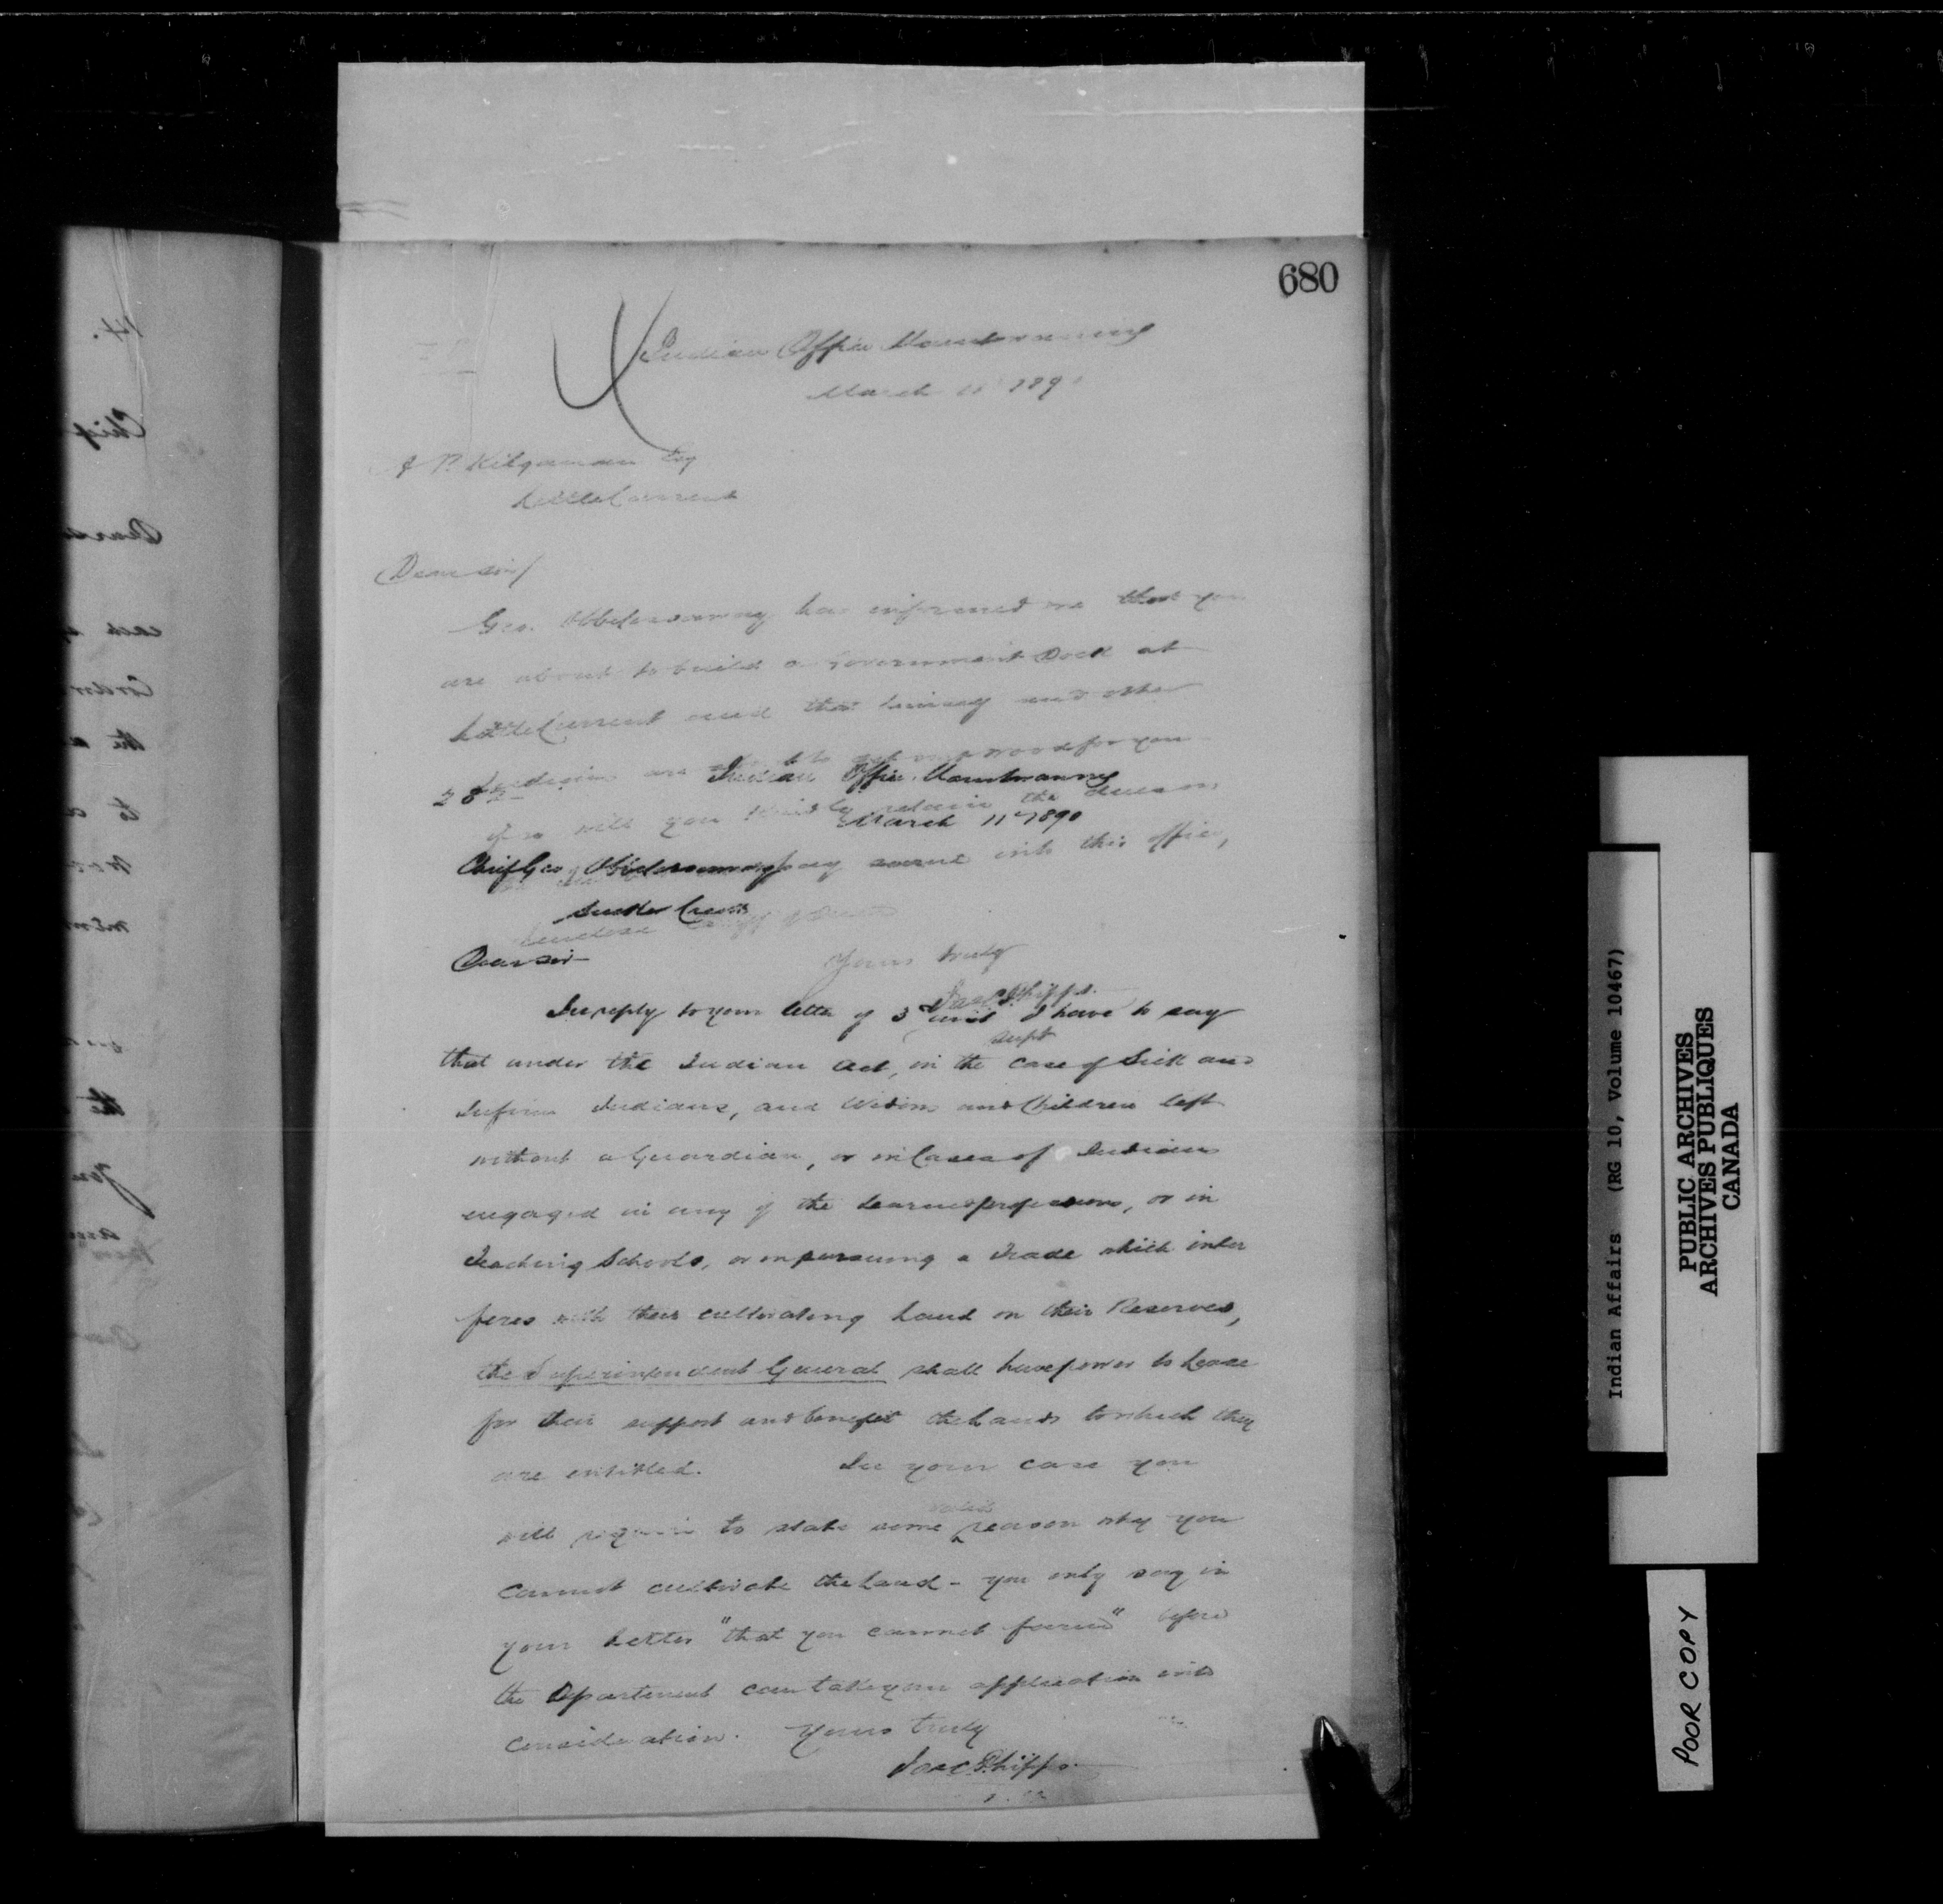 680
Indian Office Manitowaning
March 11 1890
P. Kilganan Esq
Little Current
Dear sir/
Geo. Obbdossoway has informed me that you
are about to build a Government Dock at
Little Current and that and other
Indians are to get out wood for you
If so will you kindly retain the dues on
into this office,
Yours truly
Jas C Phipps
Supt
28
Indian Office. Manitowaning
March 11th 1890
Chief Geo Obidossoway
Sucker Creek
Dear sir
In reply to your letter of 3rd inst I have to say
that under the Indian Act, in the case of Sick and
Infirm Indians, and Widows and Children left
without a Guardian, or in Cases of Indians
engaged in any of the Learned professions, or in
Teaching Schools, or in pursuing a Trade which inter
feres with their cultivating Land on their Reserves,
the Superintendent General shall have power to Lease
for their support and benefit the Lands to which they
are entitled. In your case you
will require to state some valid reason why you
cannot cultivate the Land - you only say in
your Letter "that you cannot farm" before
the Department can take your application into
consideration. Yours truly
Jas C Phipps
14.
Chief
Indian Affairs (RG 10, Volume 10467)
PUBLIC ARCHIVES
ARCHIVES PUBLIQUES
CANADA
POOR COPY